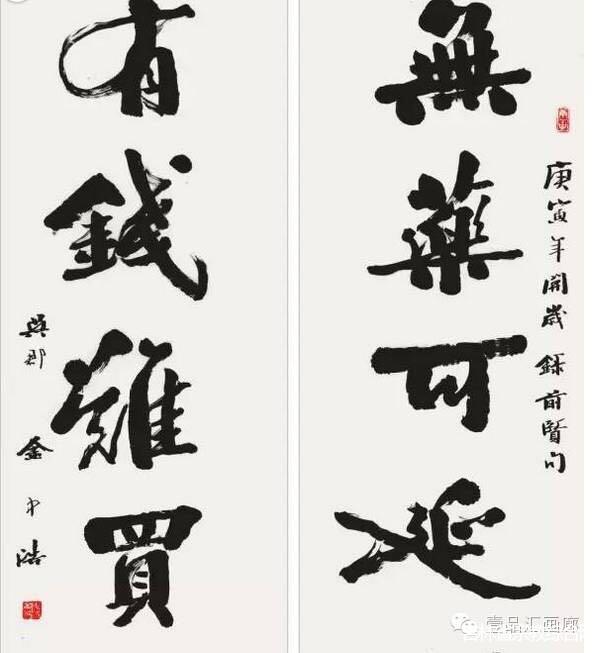 庚寅年開歲錄前賢句
無藥可延
有錢難買
吳郡 金中浩
壹品汇画廊